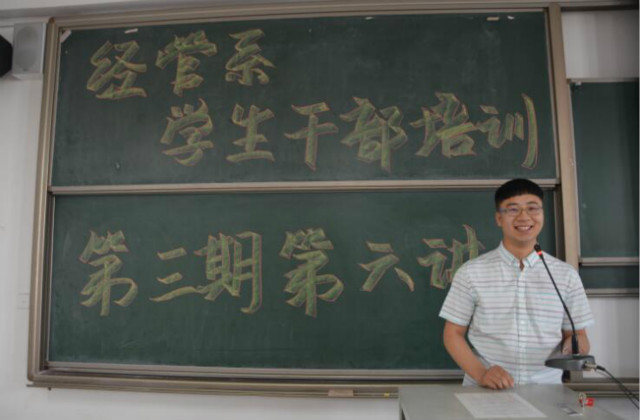 经管系
学生干部培训
第三期第六讲